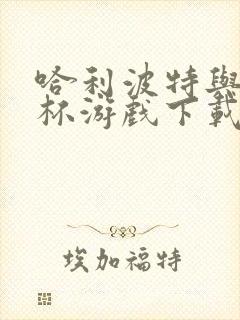 哈利波特與
杯游戲下載
埃加福特